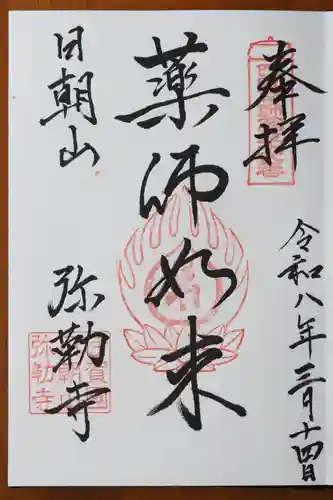 奉拝
令和八年三月十四日
薬師如来
日朝山
弥勒寺
弥勒寺